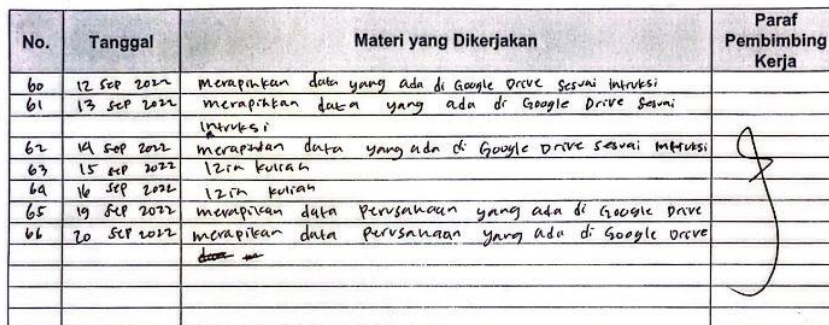 No. Tanggal Materi yang Dikerjakan Paraf Pembimbing Kerja
60 12 Sep 2022 merapihkan data yang ada di Google Drive sesuai intruksi
61 13 Sep 2022 merapihkan data yang ada di Google Drive sesuai
intruksi
62 14 Sep 2022 merapihkan data yang ada di Google Drive sesuai intruksi
63 15 Sep 2022 Izin kuliah
64 16 Sep 2022 Izin kuliah
65 19 Sep 2022 merapikan data perusahaan yang ada di Google Drive
66 20 Sep 2022 merapikan data perusahaan yang ada di Google Drive